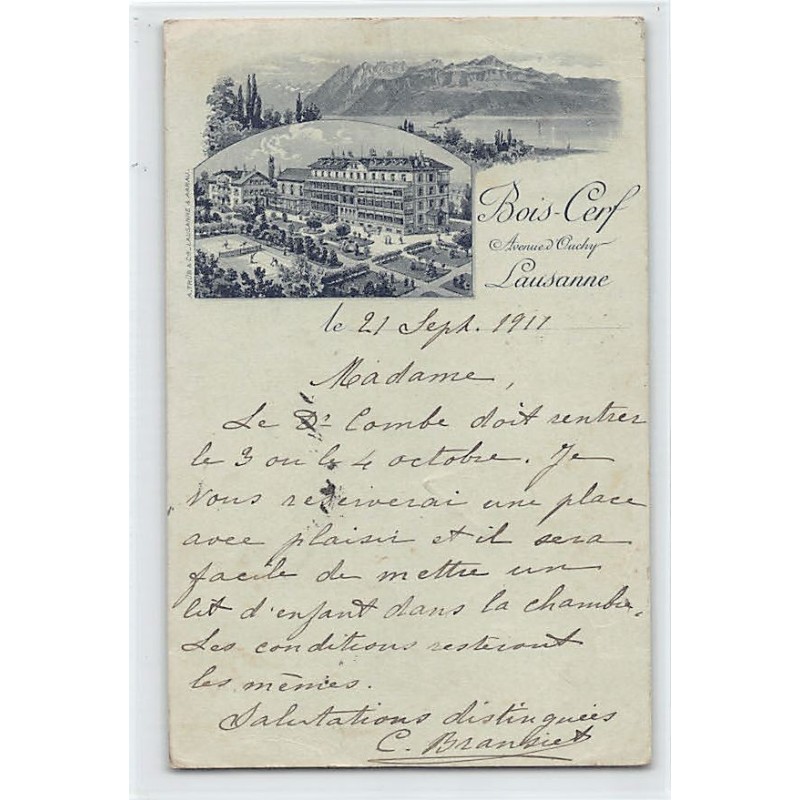 Bois-Cerf
Avenue d'Ouchy
Lausanne
A. TRÜB & CIE, LAUSANNE & AARAU.
le 21 Sept. 1911
Madame,
Le Dr Combe doit rentrer
le 3 ou le 4 octobre. Je
vous reserverai une place
avec plaisir et il sera
facile de mettre un
lit d'enfant dans la chambre.
Les conditions resteront
les mêmes.
Salutations distinguées
C.